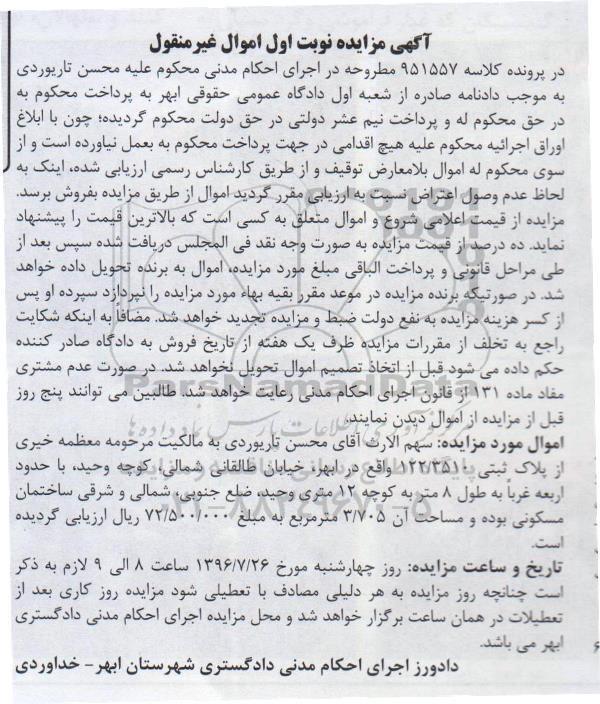 آگهی مزایده نوبت اول اموال غیرمنقول
در پرونده کلاسه ۹۵۱۵۵۷ مطروحه در اجرای احکام مدنی محکوم علیه محسن تاریوردی
به موجب دادنامه صادره از شعبه اول دادگاه عمومی حقوقی ابهر به پرداخت محکوم به
در حق محکوم له و پرداخت نیم عشر دولتی در حق دولت محکوم گردیده؛ چون با ابلاغ
اوراق اجرائیه محکوم علیه هیچ اقدامی در جهت پرداخت محکوم به بعمل نیاورده است و از
سوی محکوم له اموال بلامعارض توقیف و از طریق کارشناس رسمی ارزیابی شده، اینک به
لحاظ عدم وصول اعتراض نسبت به ارزیابی مقرر گردید اموال از طریق مزایده بفروش برسد.
مزایده از قیمت اعلامی شروع و اموال متعلق به کسی است که بالاترین قیمت را پیشنهاد
نماید. ده درصد از قیمت مزایده به صورت وجه نقد فی المجلس دریافت شده سپس بعد از
طی مراحل قانونی و پرداخت الباقی مبلغ مورد مزایده، اموال به برنده تحویل داده خواهد
شد. در صورتیکه برنده مزایده در موعد مقرر بقیه بهاء مورد مزایده را نپردازد سپرده او پس
از کسر هزینه مزایده به نفع دولت ضبط و مزایده تجدید خواهد شد. مضافاً به اینکه شکایت
راجع به تخلف از مقررات مزایده ظرف یک هفته از تاریخ فروش به دادگاه صادر کننده
حکم داده می شود قبل از اتخاذ تصمیم اموال تحویل نخواهد شد. در صورت عدم مشتری
مفاد ماده ۱۳۱ از قانون اجرای احکام مدنی رعایت خواهد شد. طالبین می توانند پنج روز
قبل از مزایده از اموال دیدن نمایند.
اموال مورد مزایده: سهم الارث آقای محسن تاریوردی به مالکیت مرحومه معظمه خیری
از پلاک ثبتی ۱۲۲/۳۵۱۰ واقع در ابهر، خیابان طالقانی شمالی، کوچه وحید، با حدود
اربعه غرباً به طول ۸ متر به کوچه ۱۲ متری وحید، ضلع جنوبی، شمالی و شرقی ساختمان
مسکونی بوده و مساحت آن ۳/۷۰۵ مترمربع به مبلغ ۷۲/۵۰۰/۰۰۰ ریال ارزیابی گردیده
است.
تاریخ و ساعت مزایده: روز چهارشنبه مورخ ۱۳۹۶/۷/۲۶ ساعت ۸ الی ۹ لازم به ذکر
است چنانچه روز مزایده به هر دلیلی مصادف با تعطیلی شود مزایده روز کاری بعد از
تعطیلات در همان ساعت برگزار خواهد شد و محل مزایده اجرای احکام مدنی دادگستری
ابهر می باشد.
دادورز اجرای احکام مدنی دادگستری شهرستان ابهر- خداوردی
ParsNamadData
۰۲۱-۸۸۳۴۹۶۷۰-۵